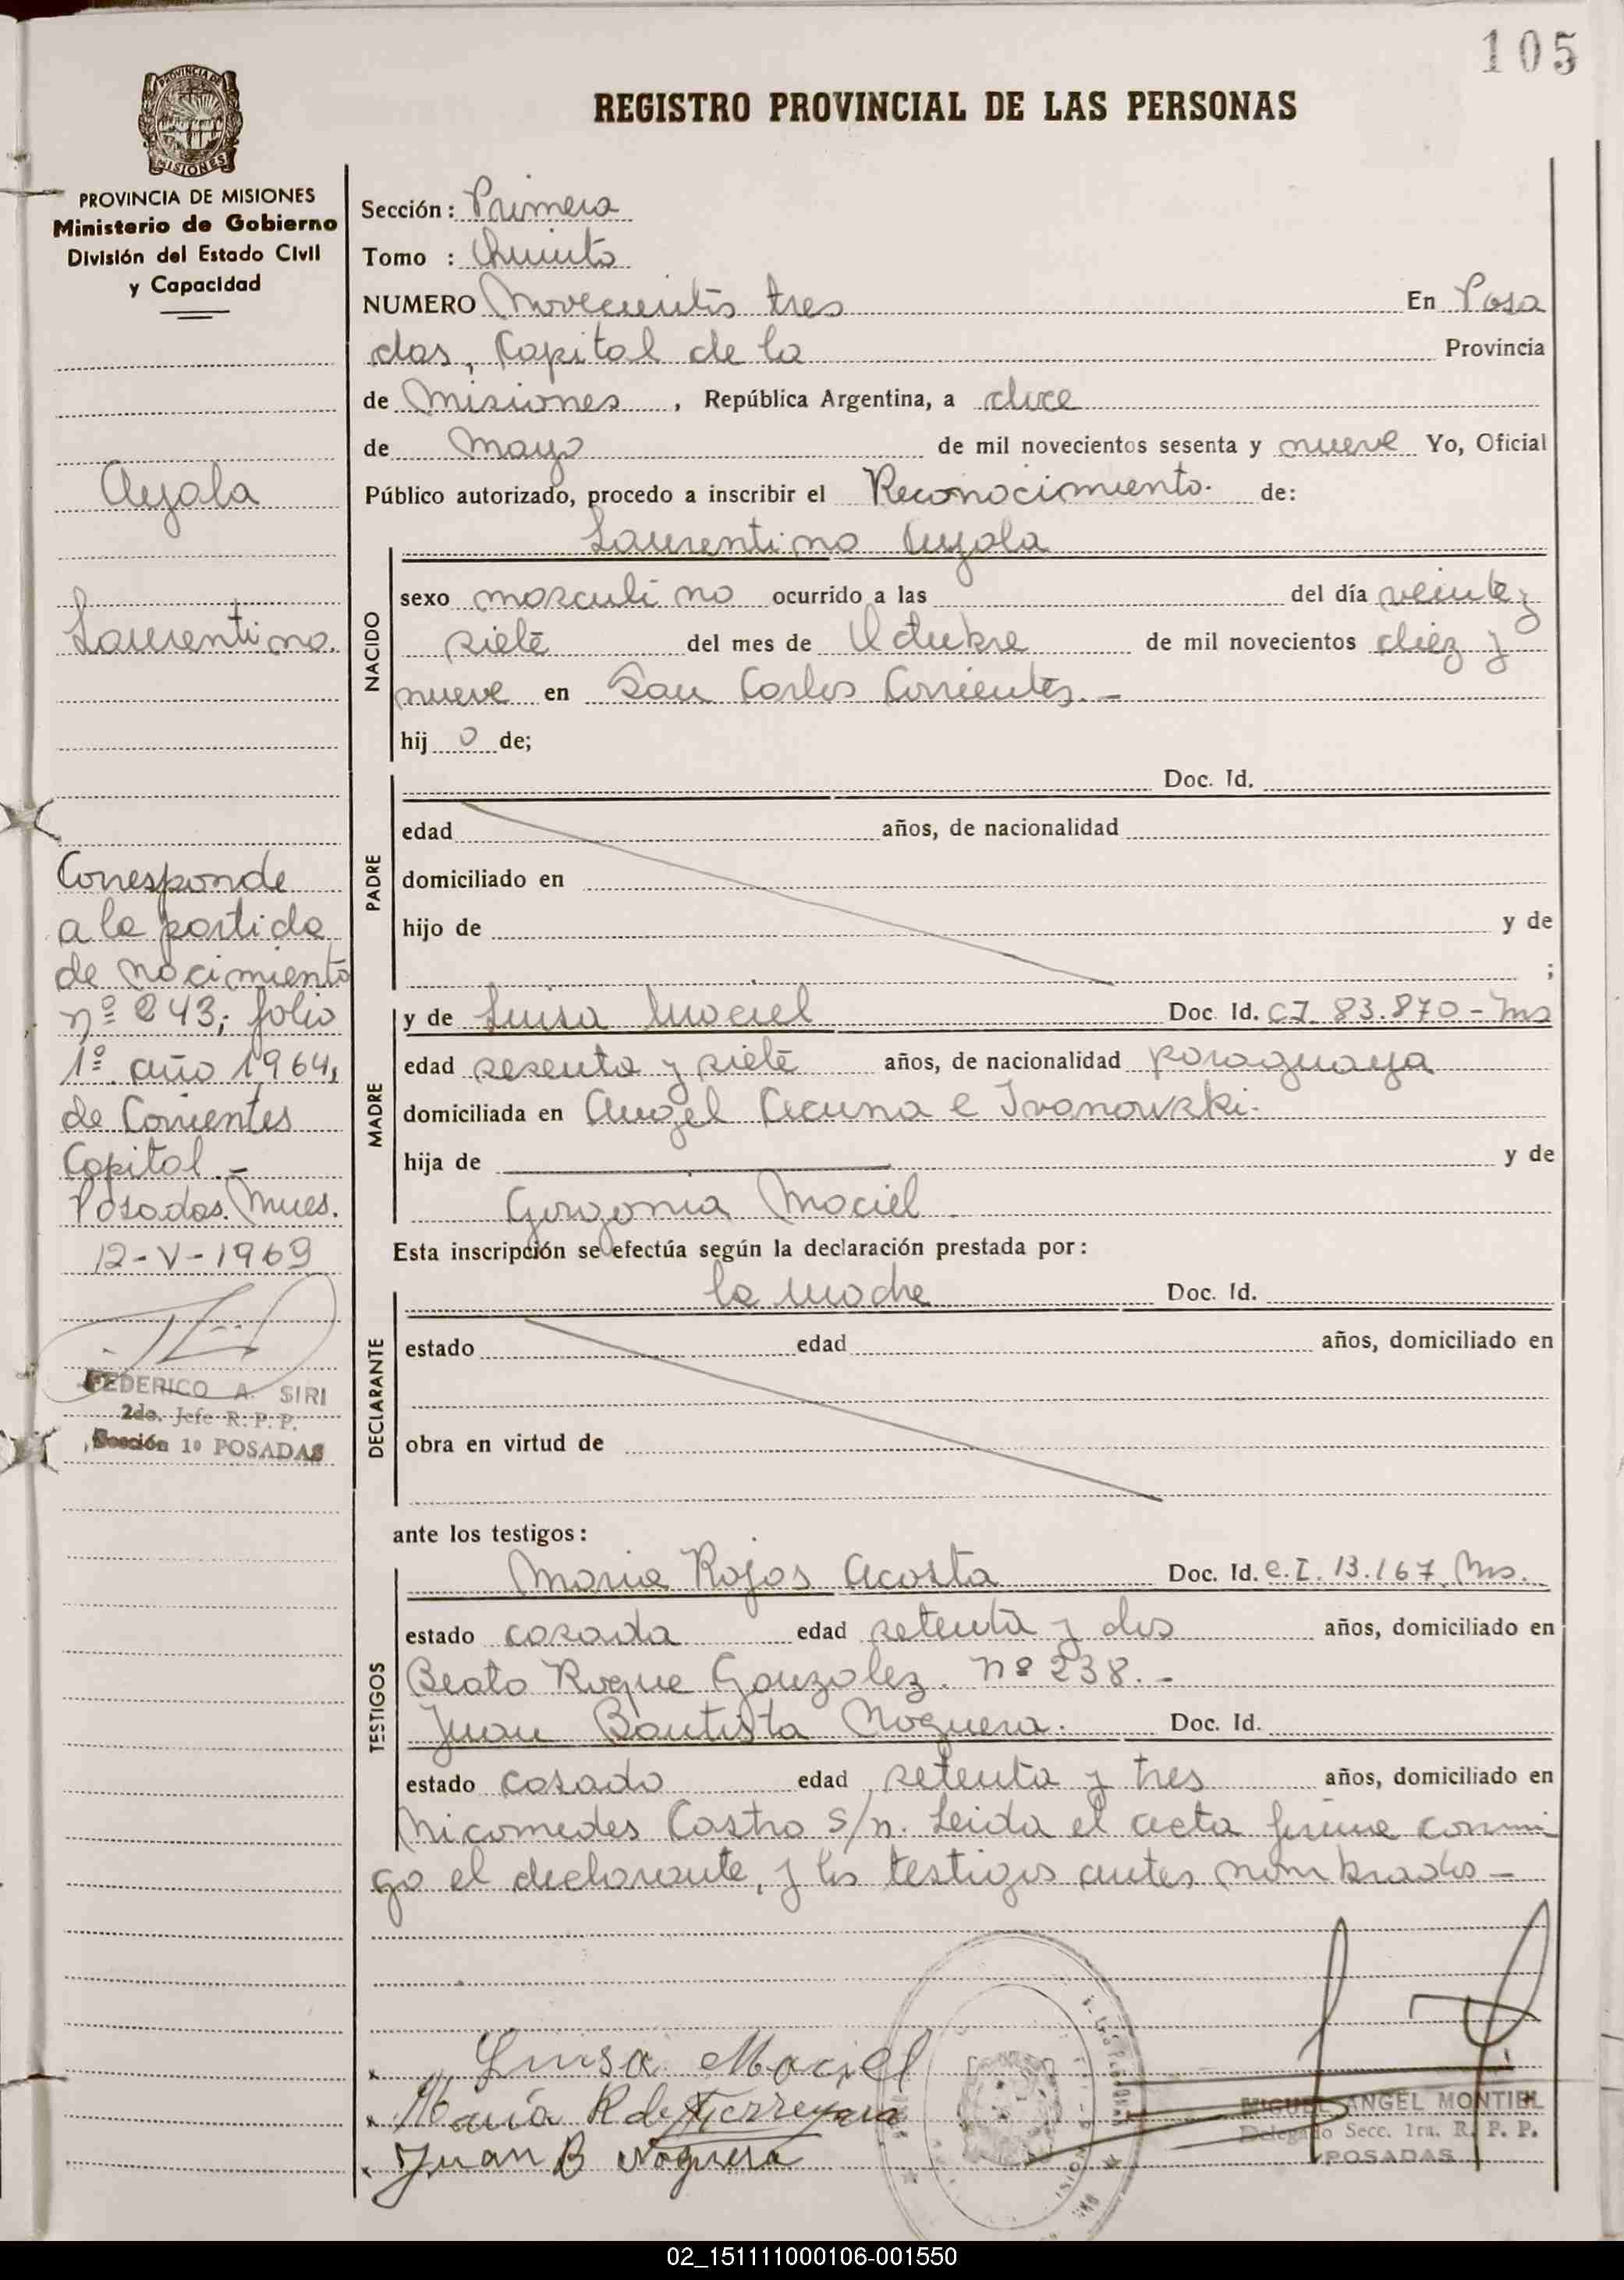 105
REGISTRO PROVINCIAL DE LAS PERSONAS
PROVINCIA DE MISIONES
PROVINCIA DE MISIONES
Ministerio de Gobierno
División del Estado Civil
y Capacidad
Ayala
Laurentino.
Corresponde
a la partida
de nacimiento
nº 243; folio
1º. año 1964,
de Corrientes
Capital.-
Posadas. Mnes.
12-V-1969
FEDERICO A. SIRI
2do. Jefe R. P. P.
Sección 1º POSADAS
Sección: Primera
Tomo : Quinto
NUMERO Novecientos tres En Posa
das, Capital de la Provincia
de Misiones, República Argentina, a doce
de Mayo de mil novecientos sesenta y nueve Yo, Oficial
Público autorizado, procedo a inscribir el Reconocimiento. de:
Laurentino Ayala
NACIDO
sexo masculino ocurrido a las del día veinte y
siete del mes de Octubre de mil novecientos diez y
nueve en San Carlos Corrientes.-
hij o de;
PADRE
Doc. Id.
edad años, de nacionalidad
domiciliado en
hijo de y de
;
MADRE
y de Luisa Maciel Doc. Id. CI. 83.870-Ms
edad sesenta y siete años, de nacionalidad paraguaya
domiciliada en Angel Acuna e Ivanowski.
hija de y de
Gorgonia Maciel.
Esta inscripción se efectúa según la declaración prestada por:
DECLARANTE
la madre Doc. Id.
estado edad años, domiciliado en
obra en virtud de
ante los testigos:
TESTIGOS
Maria Rojas Acosta Doc. Id. C.I. 13.167 Ms.
estado casada edad setenta y dos años, domiciliado en
Beato Roque Gonzalez. nº 238.-
Juan Bautista Noguera. Doc. Id.
estado casado edad setenta y tres años, domiciliado en
Nicomedes Castro s/n. Leida el acta firma conmi
go el declarante, y los testigos antes nombrados-
Luisa Maciel
María R de Ferreyara
Juan B Noguera
MIGUEL ANGEL MONTIEL
Delegado Secc. 1ra. R. P. P.
POSADAS
02_151111000106-001550